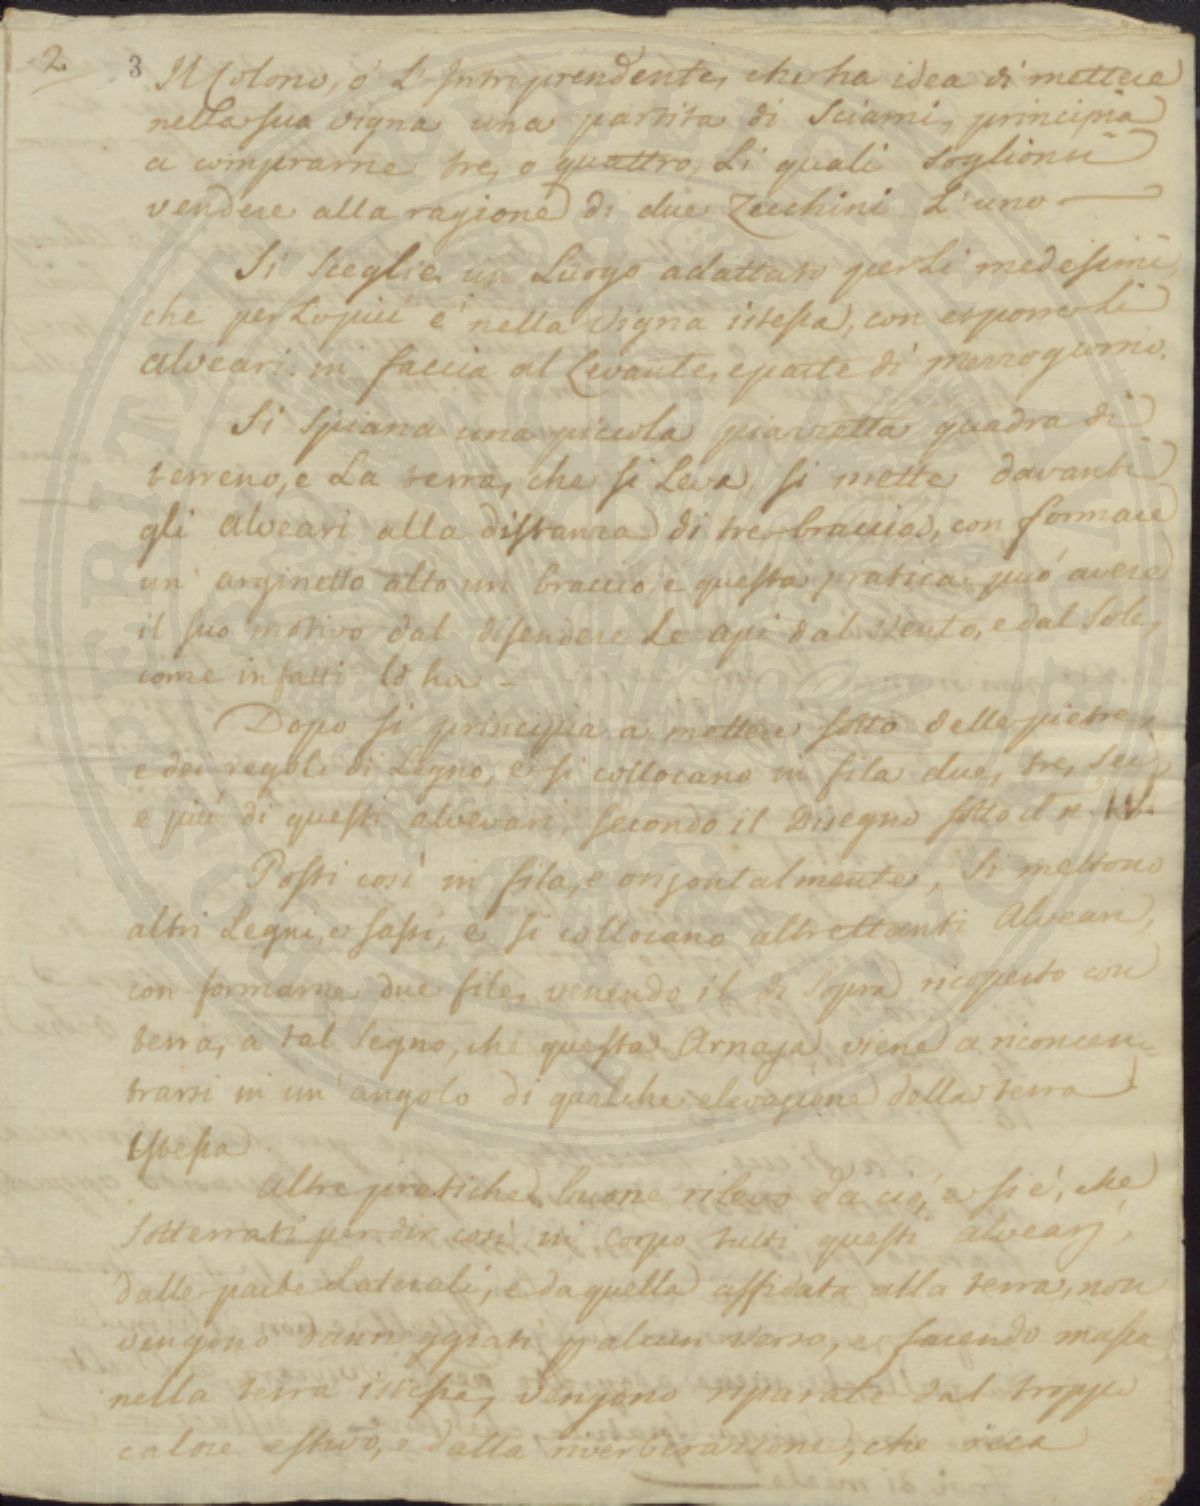 2 3 Il Colono, o' L' Intraprendente, che ha idea di mettere
nella sua vigna una partita di Sciami, principia
a comprarne tre, o quattro, Li quali soglionsi
vendere alla ragione di due Zecchini L' uno —
Si sceglie un Luogo adattato per Li medesimi
che per Lo piú é nella vigna istessa, con esporre li
alveari in faccia al Levante, e parte di mezzogiorno.
Si spiana una piccola piazzetta quadra di
terreno, e La terra, che si Leva, si mette davanti
gli alveari alla distanza di tre braccia, con formare
un' arginetto alto un braccio, e questa pratica puó avere
il suo motivo dal difendere Le api dal vento, e dal Sole,
come infatti lo ha –
Dopo si principia a mettere sotto delle pietre,
e dei regoli di Legno, e si collocano in fila due, tre, sei,
e piú di questi alveari, secondo il Disegno sotto il n. IV.
Posti cosi' in fila, e orizontalmente, Si mettono
altri Legni, e sassi, e si collocano altrettanti Alveari,
con formarne due file, venendo il di sopra ricoperto con
terra, a tal segno, che questa Arnaja viene a riconcen=
trarsi in un' angolo di qualche elevazione della terra
istessa
Altre pratiche buone rilevo da ció, e si é, che
sotterrati per dir cosi' in corpo tutti questi alvearj,
dalle parti Laterali, e da quella affidata alla terra, non
vengono danneggiati p alcun verso, e facendo massa
nella terra istessa, vengono riparati dal troppo
calore estivo, e dalla riverberazione, che reca